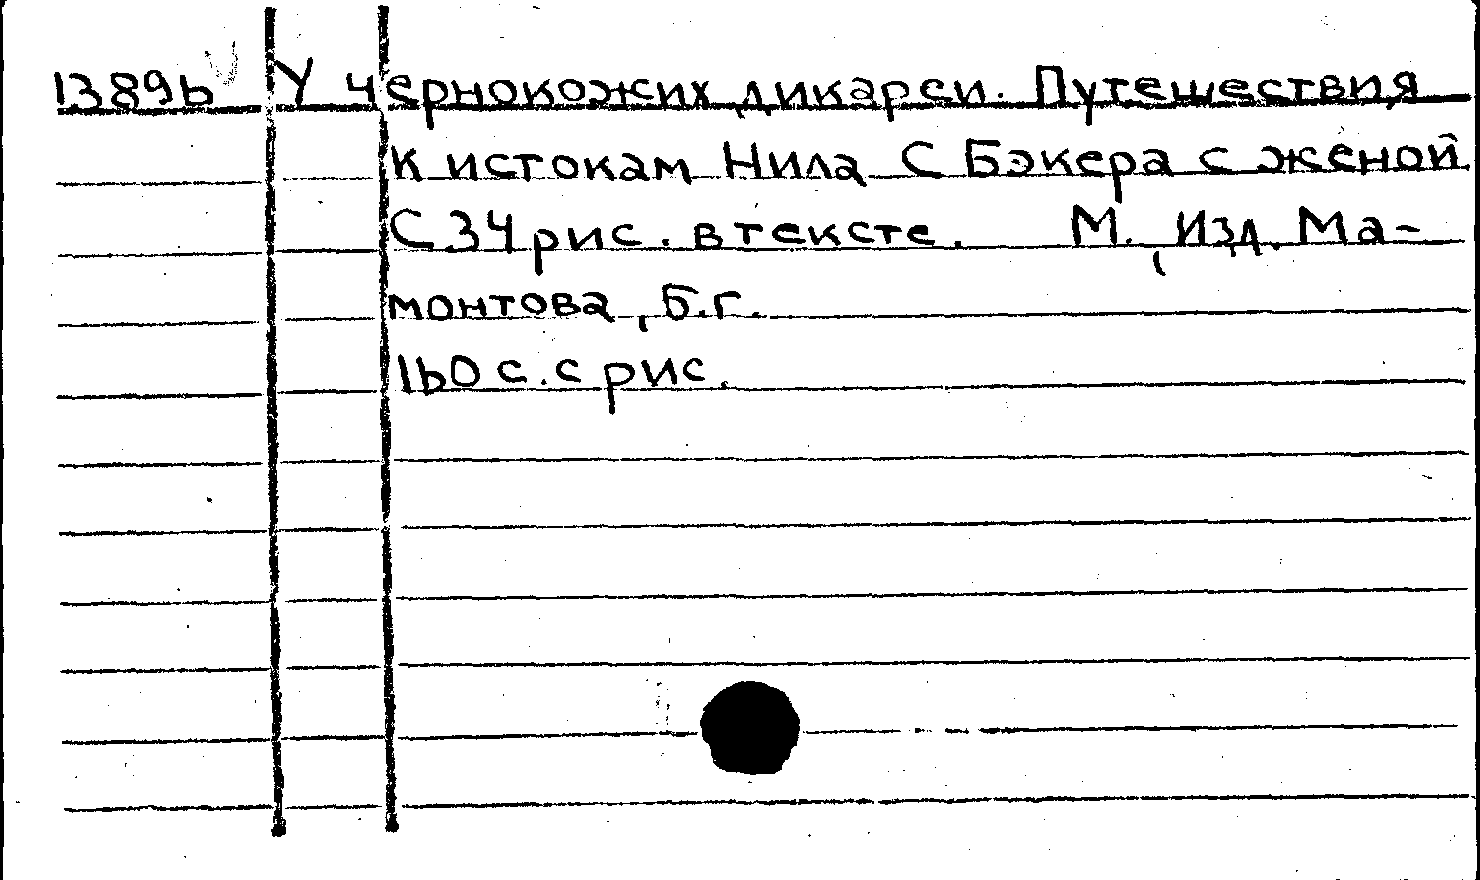 13896 У чернокожих дикарей. Путешествия
к истокам Нила С Бэкера с женой.
С 34 рис. в тексте. М., Изд. Ма-
монтова, б.г.
160 с. с рис.